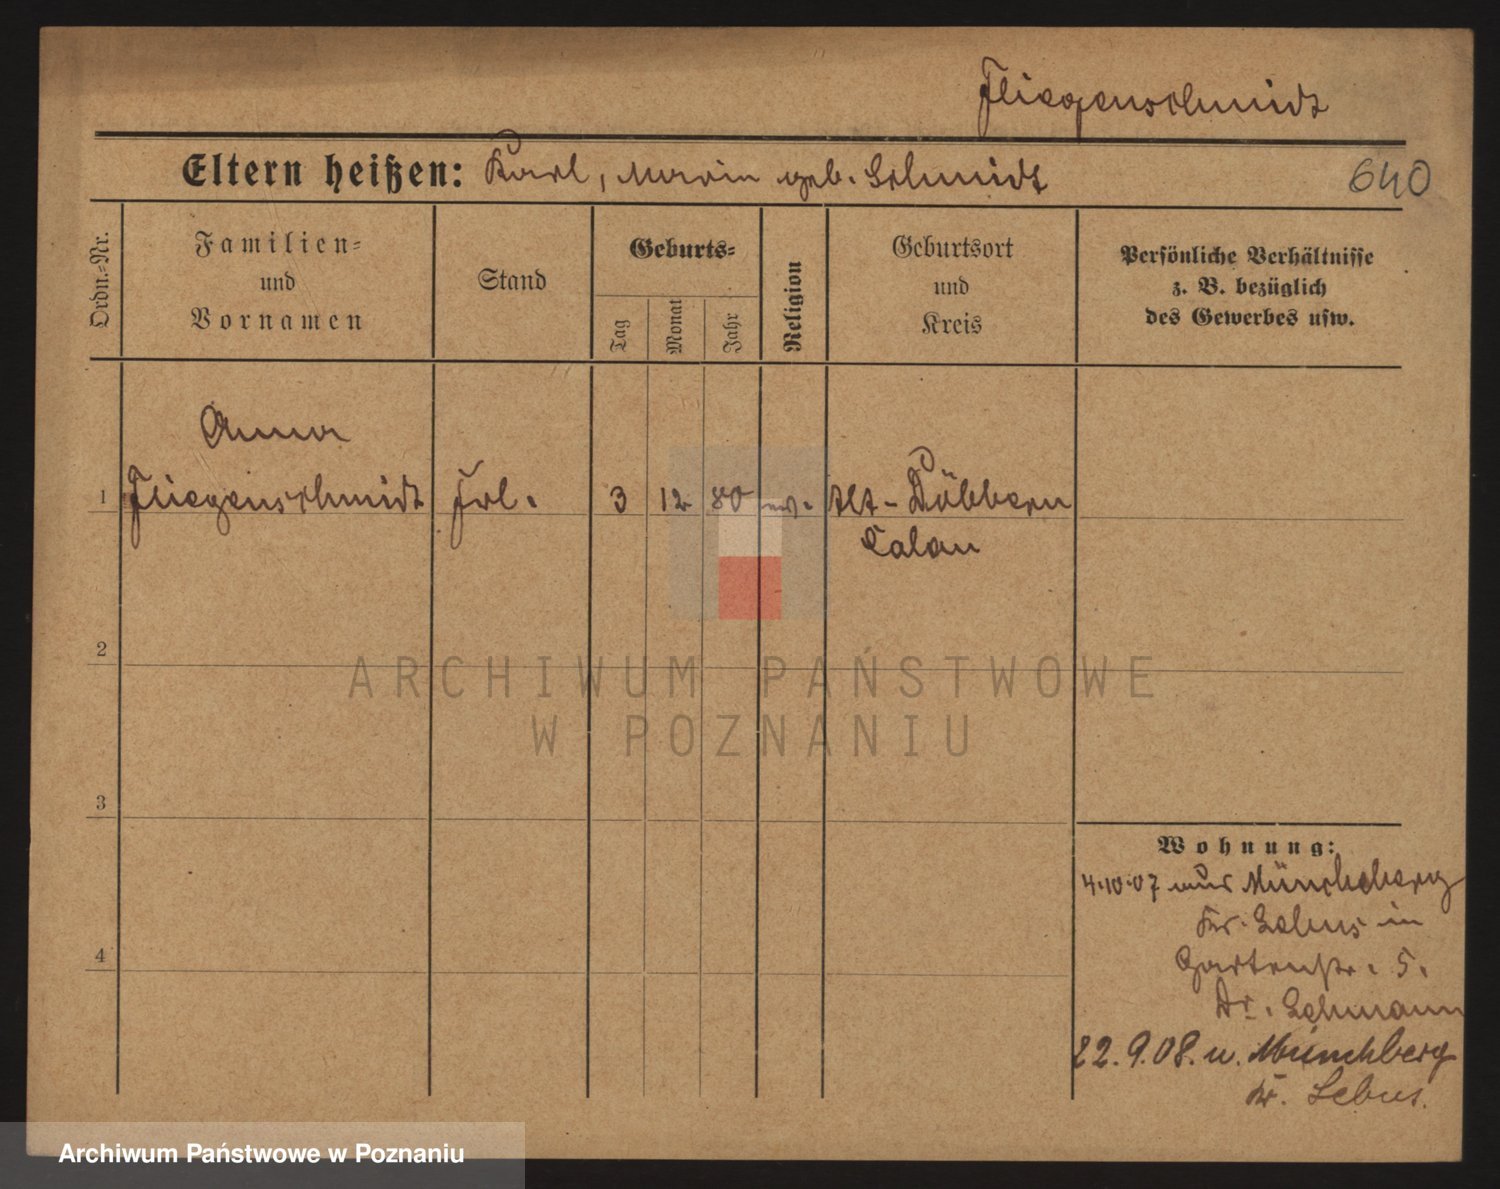 Fliegenschmidt
Eltern heißen: Karl, Marie geb. Schmidt
640
Ordn.-Nr.
Familien-
und
Vornamen
Stand
Geburts-
Tag
Monat
Jahr
Religion
Geburtsort
und
Kreis
Persönliche Verhältnisse
z. B. bezüglich
des Gewerbes usw.
Anna
1 Fliegenschmidt Frl. 3 12 80 ev. Alt-Döbbern
Calau
2
ARCHIWUM PAŃSTWOWE
W POZNANIU
3
Wohnung:
4.10.07 aus Müncheberg
Kr. Lebus in
Gartenstr. 5.
Dr. Lehmann
22.9.08. n. Münchberg
Kr. Lebus.
4
Archiwum Państwowe w Poznaniu